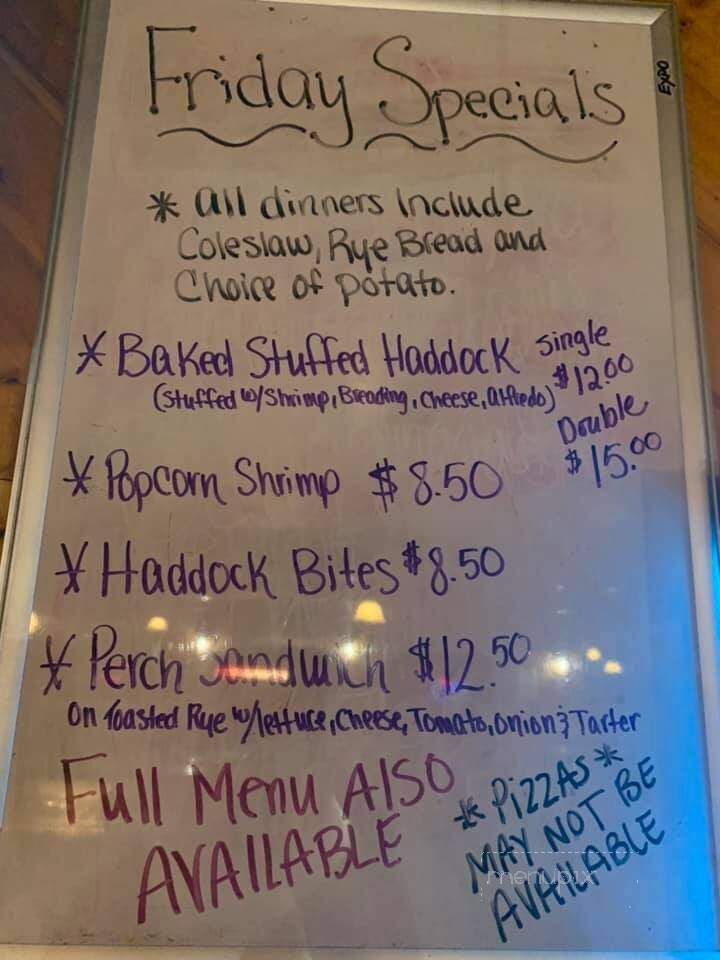 Friday Specials
EXPO
* All dinners Include
Coleslaw, Rye Bread and
Choice of potato.
* Baked Stuffed Haddock Single
(Stuffed w/Shrimp, Breading, Cheese, Alfredo) $12.00
Double
$15.00
* Popcorn Shrimp $8.50
* Haddock Bites $8.50
* Perch Sandwich $12.50
On Toasted Rye w/lettuce, Cheese, Tomato, Onion & Tarter
Full Menu Also
AVAILABLE
* PIZZAS *
MAY NOT BE
AVAILABLE
menupix